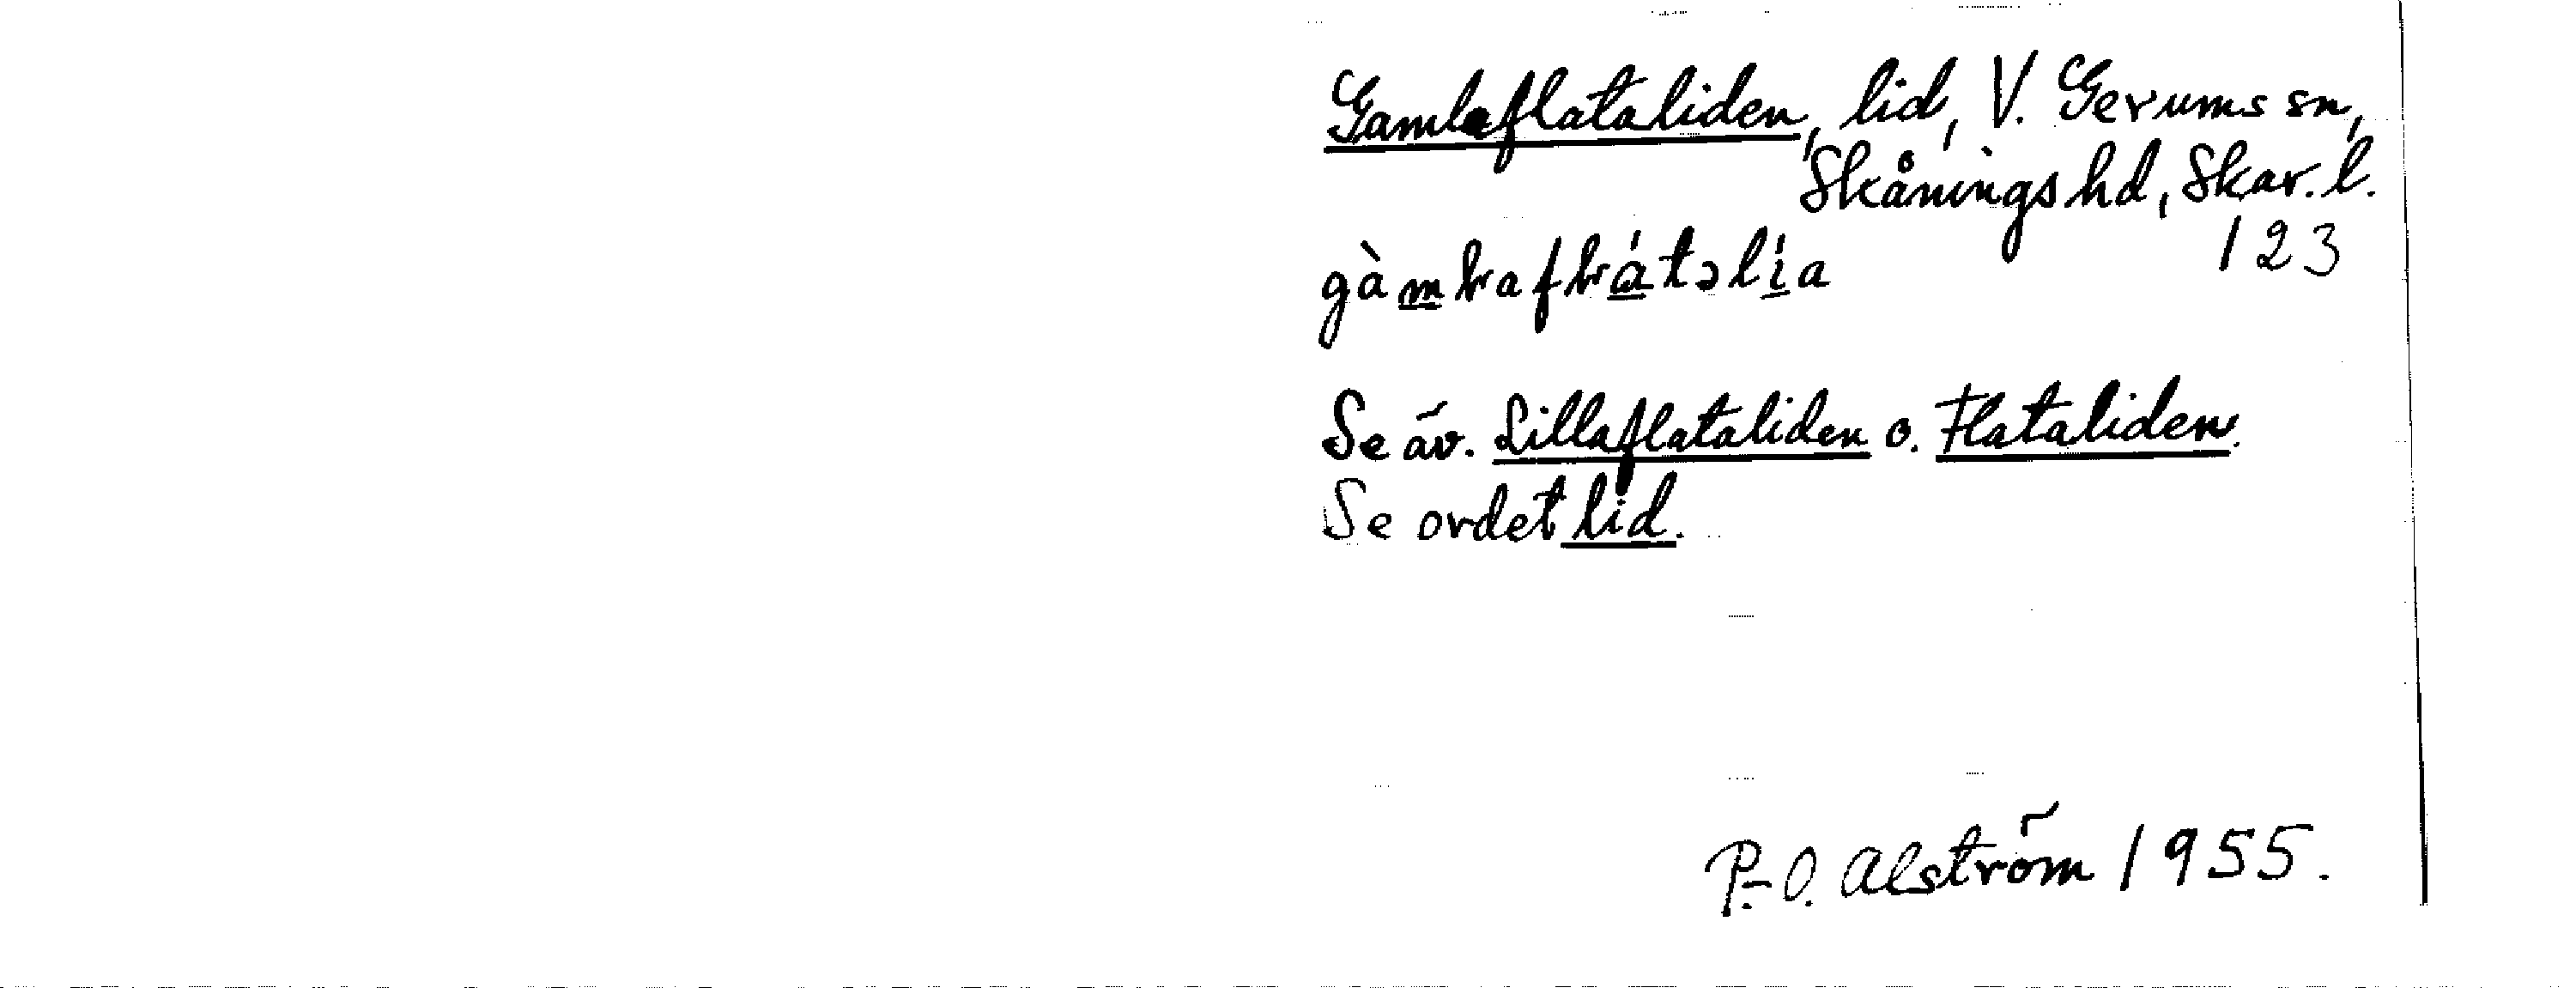 Gamlaflataliden, lid, V. Gerums sn,
Skånings hd, Skar. l.
123
Se äv. Lillaflataliden o. Flataliden.
Se ordet lid.
P.-O. Alström 1955.